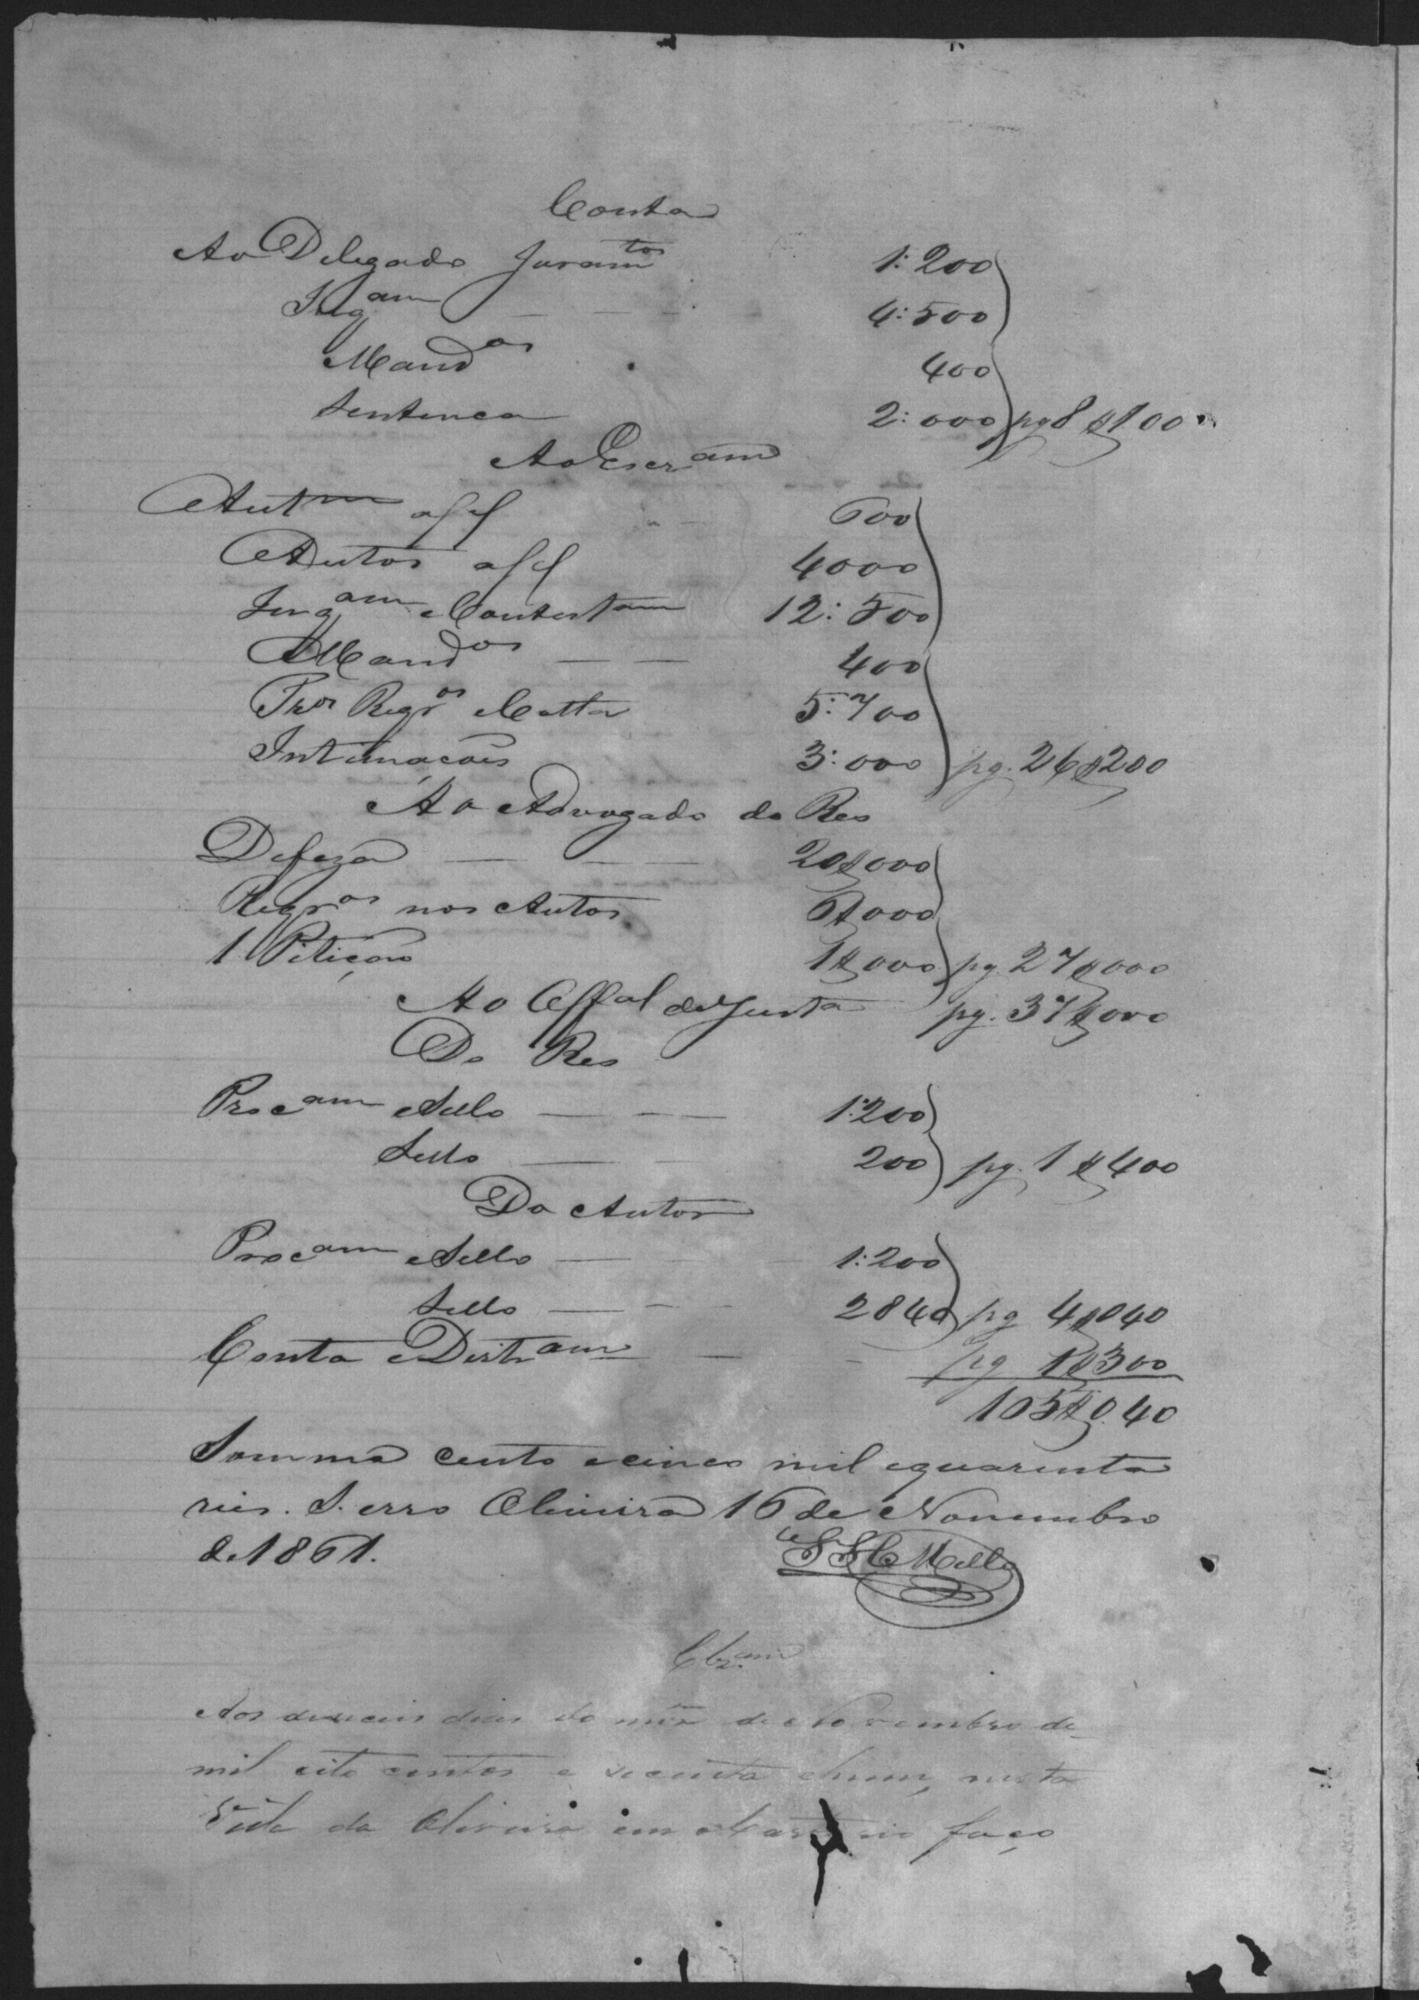 Conta
Ao Delegado Juram.tos 1:200
Inq am 4:500
Mand os 400
Sentenca 2:000 pg 8$100
Ao Escr am
Aut m 600
Autos 4000
Inq am e Contest am 12:500
Mand os 400
Pros Regr os e Cotta 5:700
Intimações 3:000 pg. 26$200
Ao Advogado do Reo
Defeza 20$000
Regr os nos Autos 6$000
1 Petição 1$000 pg 27$000
Ao Offal de Justa pg. 37$000
Do Reo
Proc am e Sello 1:200
Sello 200 pg. 1$400
Do Autor
Proc am e Sello 1:200
Sello 2840 pg 4$040
Conta e Distr am pg 1$300
105$040
Somma cento e cinco mil e quarenta
reis. S. erro Oliveira 16 de Novembro
de 1861.
Mello
Clz.am
Aos deseceis dias do mêz de Novembro de
mil oito centos e secenta e hum, nesta
Villa da Oliveira em Cartorio faço